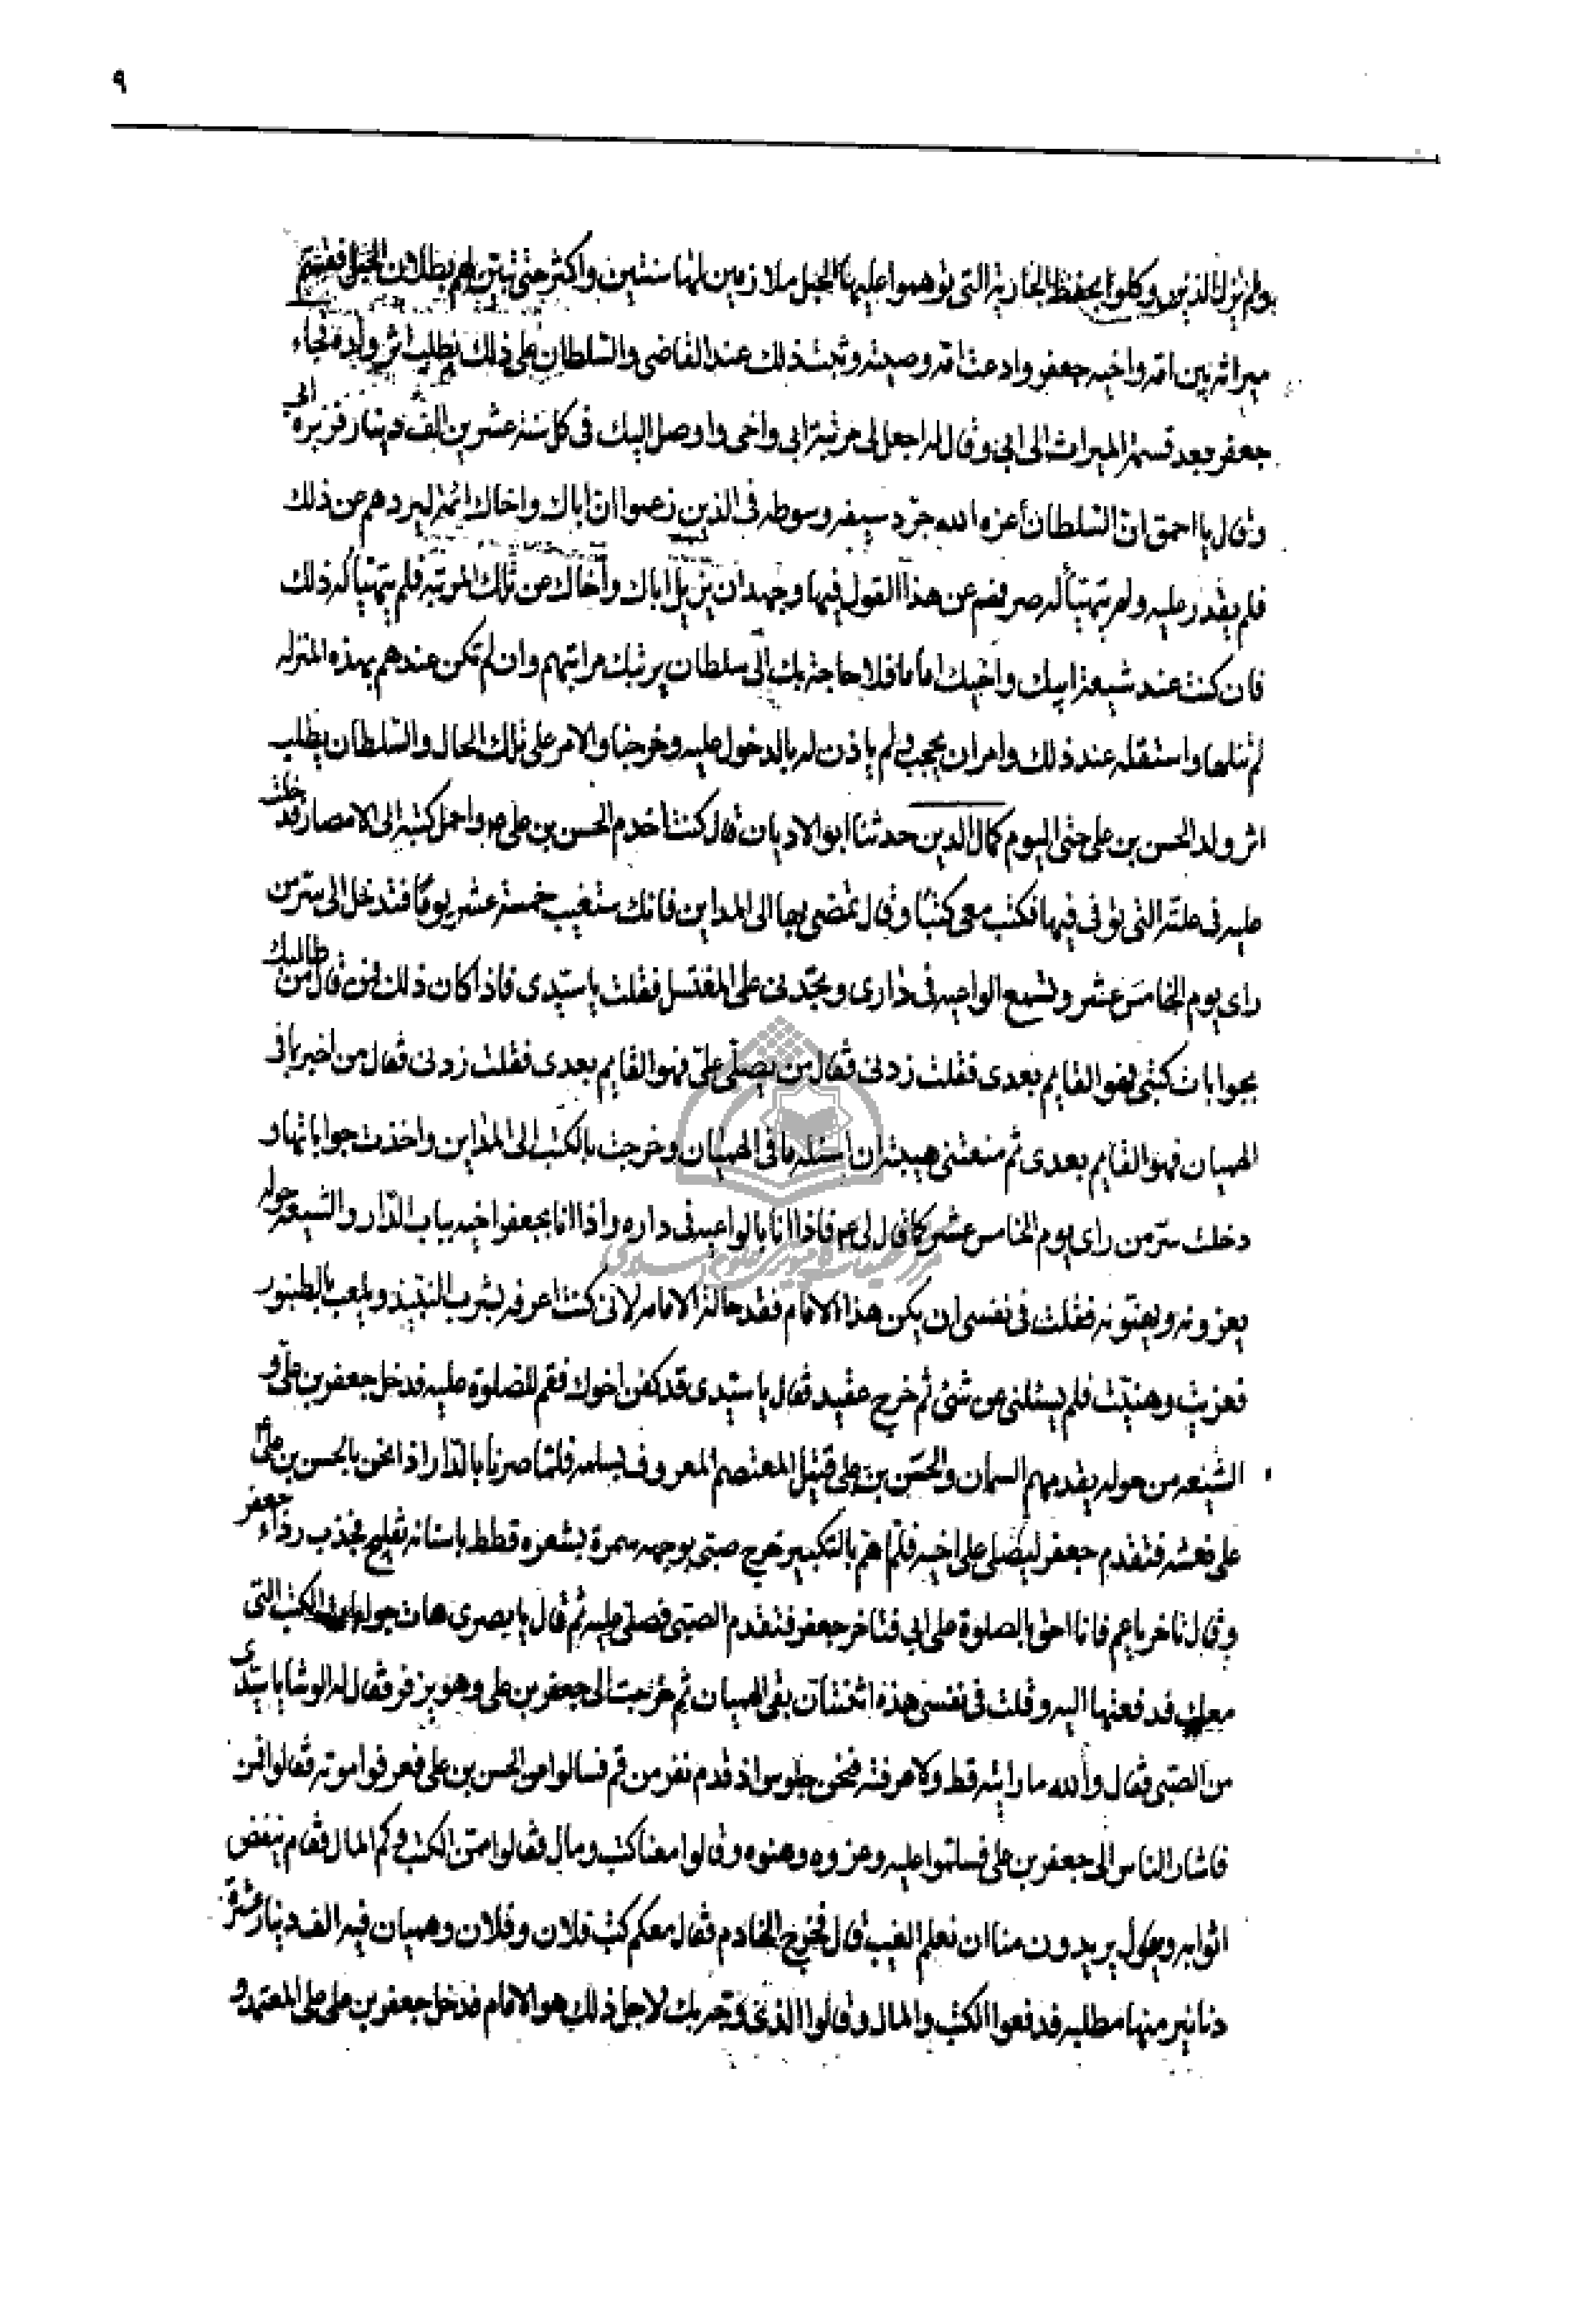 ٩
ولم يزل الذين وكلوا بحفظ الجارية التي توهموا عليها الحبل ملازمين لها سنتين واكثر حتى تبين لهم بطلان الحبل فقسم
ميراثه بين امه واخيه جعفر وادعت امه وصيته وثبت ذلك عند القاضى والسلطان على ذلك يطلب اثر ولده فجاء
جعفر بعد قسمة الميراث الى ابى وقال له اجعل لى مرتبة ابى واخى واوصل اليك فى كل سنة عشرين الف دينار فزبره ابى
وقال يا احمق ان السلطان أعزه الله جرد سيفه وسوطه فى الذين زعموا ان اباك واخاك ائمة ليردهم عن ذلك
فلم يقدر عليه ولم يتهيأ له صرفهم عن هذا القول فيها وجهد ان يزيل اباك وأخاك عن تلك المرتبة فلم يتهيأ له ذلك
فان كنت عند شيعة ابيك واخيك اماما فلا حاجة بك الى سلطان يرتبك مراتبهم وان لم تكن عندهم بهذه المنزله
لم تنلها واستقله عند ذلك وامر ان يحجب ولم ياذن له بالدخول عليه وخرجنا والامر على تلك الحال والسلطان يطلب
اثر ولد الحسن بن على حتى اليوم كمال الدين حدثنا ابو الاديان قال كنت اخدم الحسن بن على ع واحمل كتبه الى الامصار فدخلت
عليه فى علته التى توفى فيها فكتب معى كتبًا وقال تمضى بها الى المداين فانك ستغيب خمسة عشر يومًا فتدخل الى سر من
راى يوم الخامس عشر وتسمع الواعيه فى دارى وتجدنى على المغتسل فقلت يا سيدى فاذا كان ذلك فمن قال من طالبك
بجوابات كتبى فهو القايم بعدى فقلت زدنى فقال من يصلى علىّ فهو القايم بعدى فقلت زدنى فقال من اخبر بما فى
الهميان فهو القايم بعدى ثم منعتنى هيبته ان اسئله ما فى الهميان وخرجت بالكتب الى المداين واخذت جواباتها و
دخلت سر من راى يوم الخامس عشر كما قال لى ع فاذا انا بالواعيه فى داره واذا انا بجعفر اخيه بباب الدار والشيعه حوله
يعزونه ويهنونه فقلت فى نفسى ان يكن هذا الامام فقد حالت الامامه لانى كنت اعرفه بشرب النبيذ ويلعب بالطنبور
فعزيت وهنيت فلم يسئلنى عن شئ ثم خرج عقيد فقال يا سيدى قد كفن اخوك فقم للصلوة عليه فدخل جعفر بن على و
الشيعه من حوله يقدمهم السمان والحسن بن على قتيل المعتصم المعروف بسلمه فلما صرنا بالدار اذا نحن بالحسن بن على ع
على نعشه فتقدم جعفر ليصلى على اخيه فلما هم بالتكبير خرج صبى بوجهه سمرة بشعره قطط باسنانه تفليج فجذب رداء جعفر
وقال تاخر يا عم فانا احق بالصلوة على ابى فتاخر جعفر فتقدم الصبى فصلى عليه ثم قال يا بصرى هات جوابات الكتب التى
معك فدفعتها اليه وقلت فى نفسى هذه اثنتان بقى الهميان ثم خرجت الى جعفر بن على وهو يزفر فقال له الوشا يا سيدى
من الصبى فقال والله ما رايته قط ولا عرفته فنحن جلوس اذ قدم نفر من قم فسالوا عن الحسن بن على فعرفوا موته فقالوا فمن
فاشار الناس الى جعفر بن على فسلموا عليه وعزوه وهنوه وقالوا معنا كتب ومال فقالوا ممن الكتب وكم المال فقام ينفض
اثوابه ويقول يريدون منا ان نعلم الغيب قال فخرج الخادم فقال معكم كتب فلان وفلان وهميان فيه الف دينار عشرة
دنانير منها مطلية فدفعوا الكتب والمال وقالوا الذى وجه بك لاجل ذلك هو الامام فدخل جعفر بن على على المعتمد و